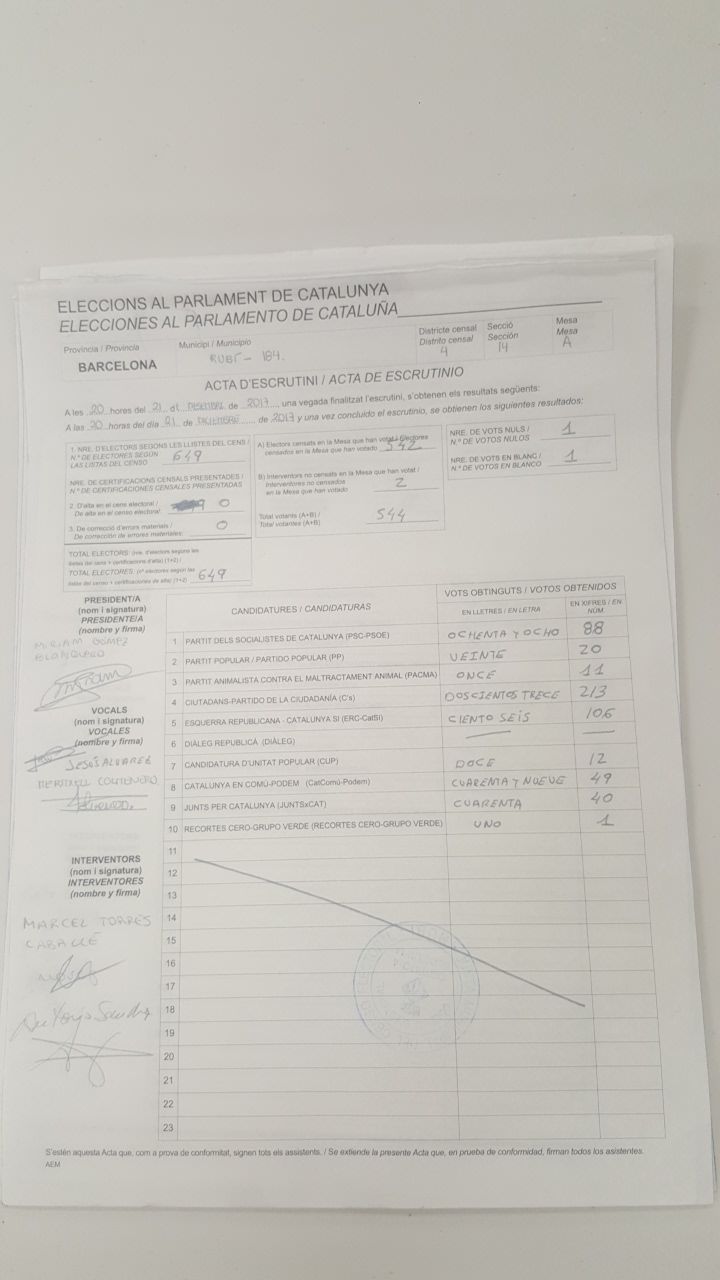 ELECCIONS AL PARLAMENT DE CATALUNYA
ELECCIONES AL PARLAMENTO DE CATALUÑA
Província / Provincia
BARCELONA
Municipi / Municipio
RUBÍ - 184.
Districte censal
Distrito censal
4
Secció
Sección
14
Mesa
Mesa
A
ACTA D'ESCRUTINI / ACTA DE ESCRUTINIO
A les 20 hores del 21 de DESEMBRE de 2017, una vegada finalitzat l'escrutini, s'obtenen els resultats següents:
A las 20 horas del día 21 de DICIEMBRE de 2017 y una vez concluido el escrutinio, se obtienen los siguientes resultados:
1. NRE. D'ELECTORS SEGONS LES LLISTES DEL CENS /
N.º DE ELECTORES SEGÚN
LAS LISTAS DEL CENSO 649
NRE. DE CERTIFICACIONS CENSALS PRESENTADES /
N.º DE CERTIFICACIONES CENSALES PRESENTADAS
2. D'alta en el cens electoral /
De alta en el censo electoral: 0
3. De correcció d'errors materials /
De corrección de errores materiales: 0
TOTAL ELECTORS: (nre. d'electors segons les
llistes del cens + certificacions d'alta) (1+2) /
TOTAL ELECTORES: (nº electores según las
listas del censo + certificaciones de alta) (1+2) 649
A) Electors censats en la Mesa que han votat / Electores
censados en la Mesa que han votado 542
B) Interventors no censats en la Mesa que han votat /
Interventores no censados
en la Mesa que han votado 2
Total votants (A+B) /
Total votantes (A+B) 544
NRE. DE VOTS NULS /
N.º DE VOTOS NULOS 1
NRE. DE VOTS EN BLANC /
N.º DE VOTOS EN BLANCO 1
PRESIDENT/A
(nom i signatura)
PRESIDENTE/A
(nombre y firma)
MIRIAM GÓMEZ
BLANQUERO
VOCALS
(nom i signatura)
VOCALES
(nombre y firma)
JESÚS ALVAREZ
INTERVENTORS
(nom i signatura)
INTERVENTORES
(nombre y firma)
MARCEL TORRES
CABALLÉ
CANDIDATURES / CANDIDATURAS
VOTS OBTINGUTS / VOTOS OBTENIDOS
EN LLETRES / EN LETRA
EN XIFRES / EN
NÚM.
1 PARTIT DELS SOCIALISTES DE CATALUNYA (PSC-PSOE) OCHENTA Y OCHO 88
2 PARTIT POPULAR / PARTIDO POPULAR (PP) VEINTE 20
3 PARTIT ANIMALISTA CONTRA EL MALTRACTAMENT ANIMAL (PACMA) ONCE 11
4 CIUTADANS-PARTIDO DE LA CIUDADANÍA (C's) DOSCIENTOS TRECE 213
5 ESQUERRA REPUBLICANA - CATALUNYA SI (ERC-CatSí) CIENTO SEIS 106
6 DIÀLEG REPUBLICÀ (DIÀLEG)
7 CANDIDATURA D'UNITAT POPULAR (CUP) DOCE 12
8 CATALUNYA EN COMÚ-PODEM (CatComú-Podem) CUARENTA Y NUEVE 49
9 JUNTS PER CATALUNYA (JUNTSxCAT) CUARENTA 40
10 RECORTES CERO-GRUPO VERDE (RECORTES CERO-GRUPO VERDE) UNO 1
11
12
13
14
15
16
17
18
19
20
21
22
23
S'estén aquesta Acta que, com a prova de conformitat, signen tots els assistents. / Se extiende la presente Acta que, en prueba de conformidad, firman todos los asistentes.
AEM